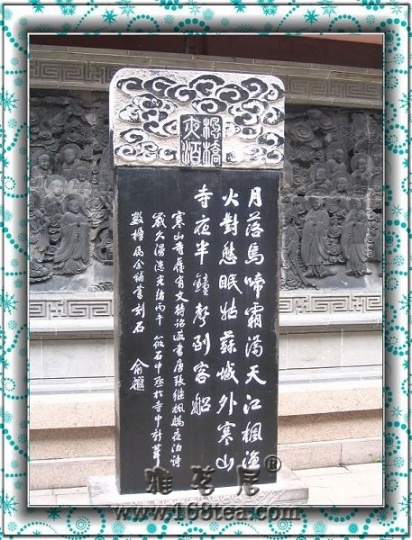 楓橋
夜泊
月落烏啼霜滿天江楓漁
火對愁眠姑蘇城外寒山
寺夜半鐘聲到客船
寒山寺舊有文待詔所書唐張繼楓橋夜泊詩
歲久漫漶光緒丙午筱石中丞於寺中新葺
數楹屬余補書刻石 俞樾
雅茗居®
www.168tea.com